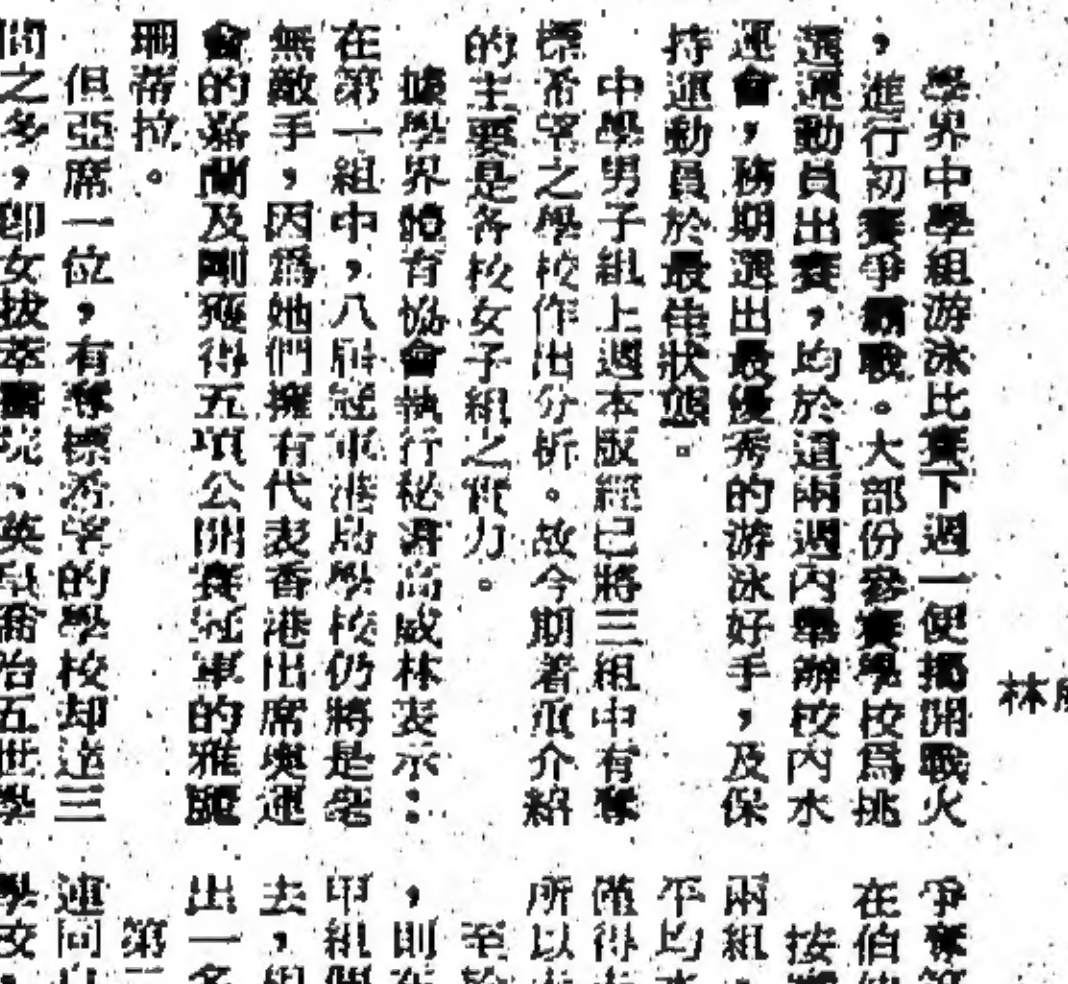 學界中學組游泳比賽下週一便揭開戰火
，進行初賽爭霸戰。大部份參賽學校爲挑
選運動員出賽，均於這兩週內舉辦校內水
運會，務期選出最優秀的游泳好手，及保
持運動員於最佳狀態。
中學男子組上週本版經已將三組中有奪
標希望之學校作出分析。故今期着重介紹
的主要是各校女子組之實力。
據學界體育協會執行秘書高威林表示：
在第一組中，八屆冠軍港島學校仍將是毫
無敵手，因爲她們擁有代表香港出席奧運
會的嘉蘭及剛獲得五項公開賽冠軍的雅麗
珊蒂拉。
但亞席一位，有奪標希望的學校却達三
間之多，即女拔萃書院、英皇喬治五世學
林
爭奪
在伯
按
兩組
平均
僅得
所以
至於
，則
甲組
去，組
出一名
第
連同
學校，